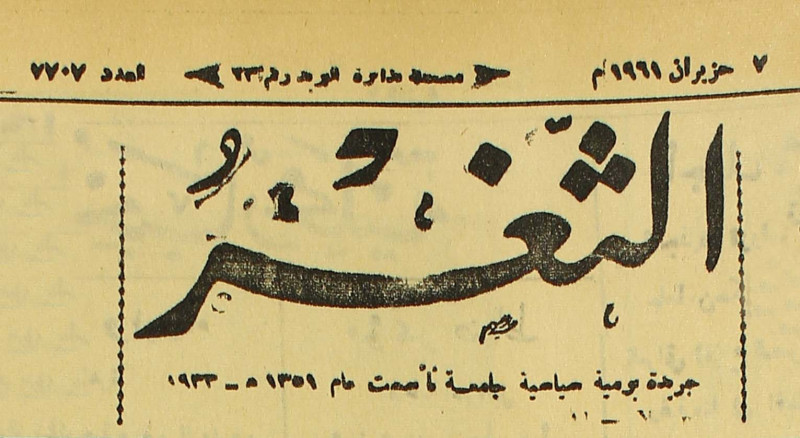 ٧ حزيران ١٩٦١م
مصلحة دائرة البريد رقم ٢٣
العدد ٧٧٠٧
الثَّغْرُ
جريدة يومية سياسية جامعة تأسست عام ١٣٥١ هـ ـ ١٩٣٣